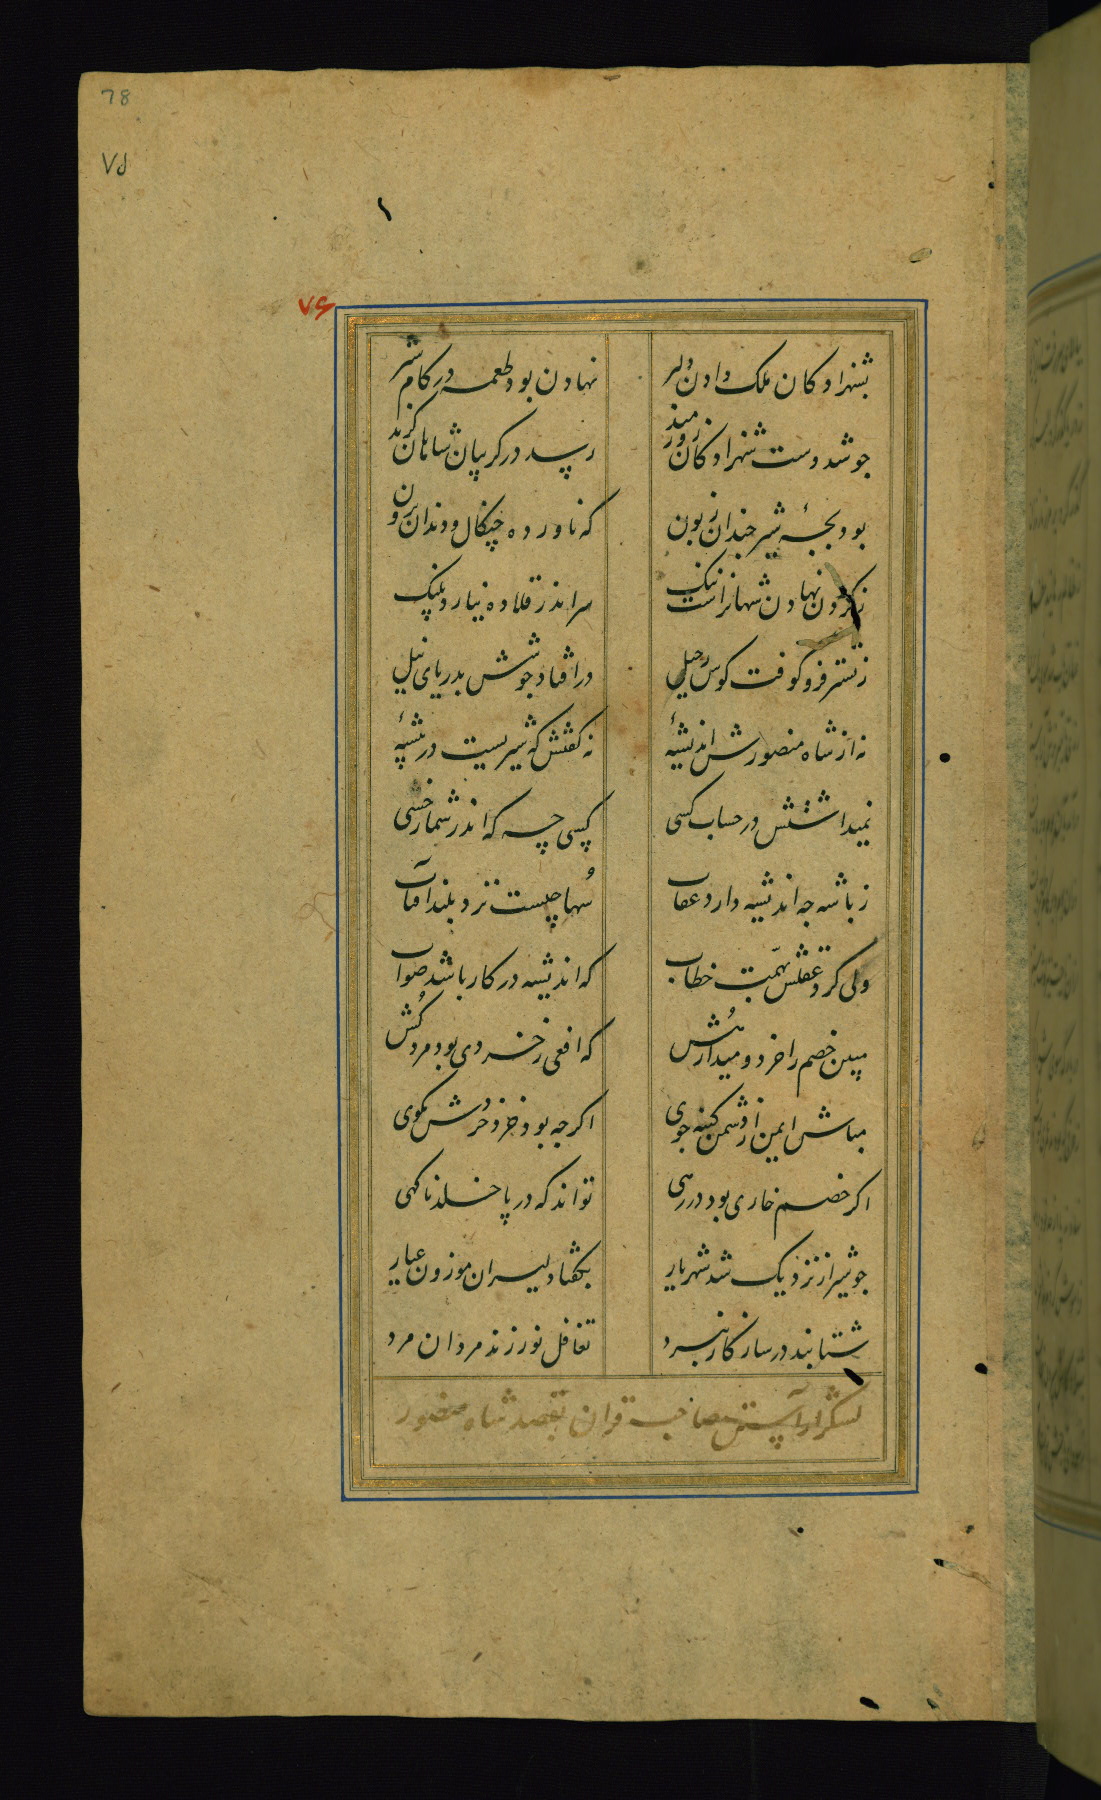 78
۷۸
۷۶
بشهزادکان ملک دادن دلیر نهادن بود طعمه در کام شیر
جو شد دست شهزادکان زورمند رسد در کریبان شاهان کزند
بود بجهٔ شیر جندان زبون که ناورده چنکال و دندان برون
نکردن نهادن شهانراست ننک سر اندر قلاده نیارد پلنک
ز تستر فرو کوفت کوس رحیل در افتاد جوشش بدریای نیل
نه از شاه منصورش اندیشهٔ نه کفتش که شیریست در بیشهٔ
نمیداشتش در حساب کسی کسی چه که اندر شمار خسی
ز باشه جه اندیشه دارد عقاب سُها چیست نزد بلند آفتاب
ولی کرد عقلش بهمّت خطاب که اندیشه در کار باشد صواب
مبین خصم را خرد و میدار هُش که افعی ز خردی بود مردکُش
مباش ایمن از دشمن کینه جوی اکرجه بود خرد خُردش مکوی
اکر خصم خاری بود در رهی تواند که در پا خلد ناکهی
جو شیراز نزدیک شد شهریار بکفتا دلیران موزون عیار
شتابند در ساز کار نبرد تغافل نورزند مردان مرد
لشکر آراستن صاحب قران بقصد شاه منصور